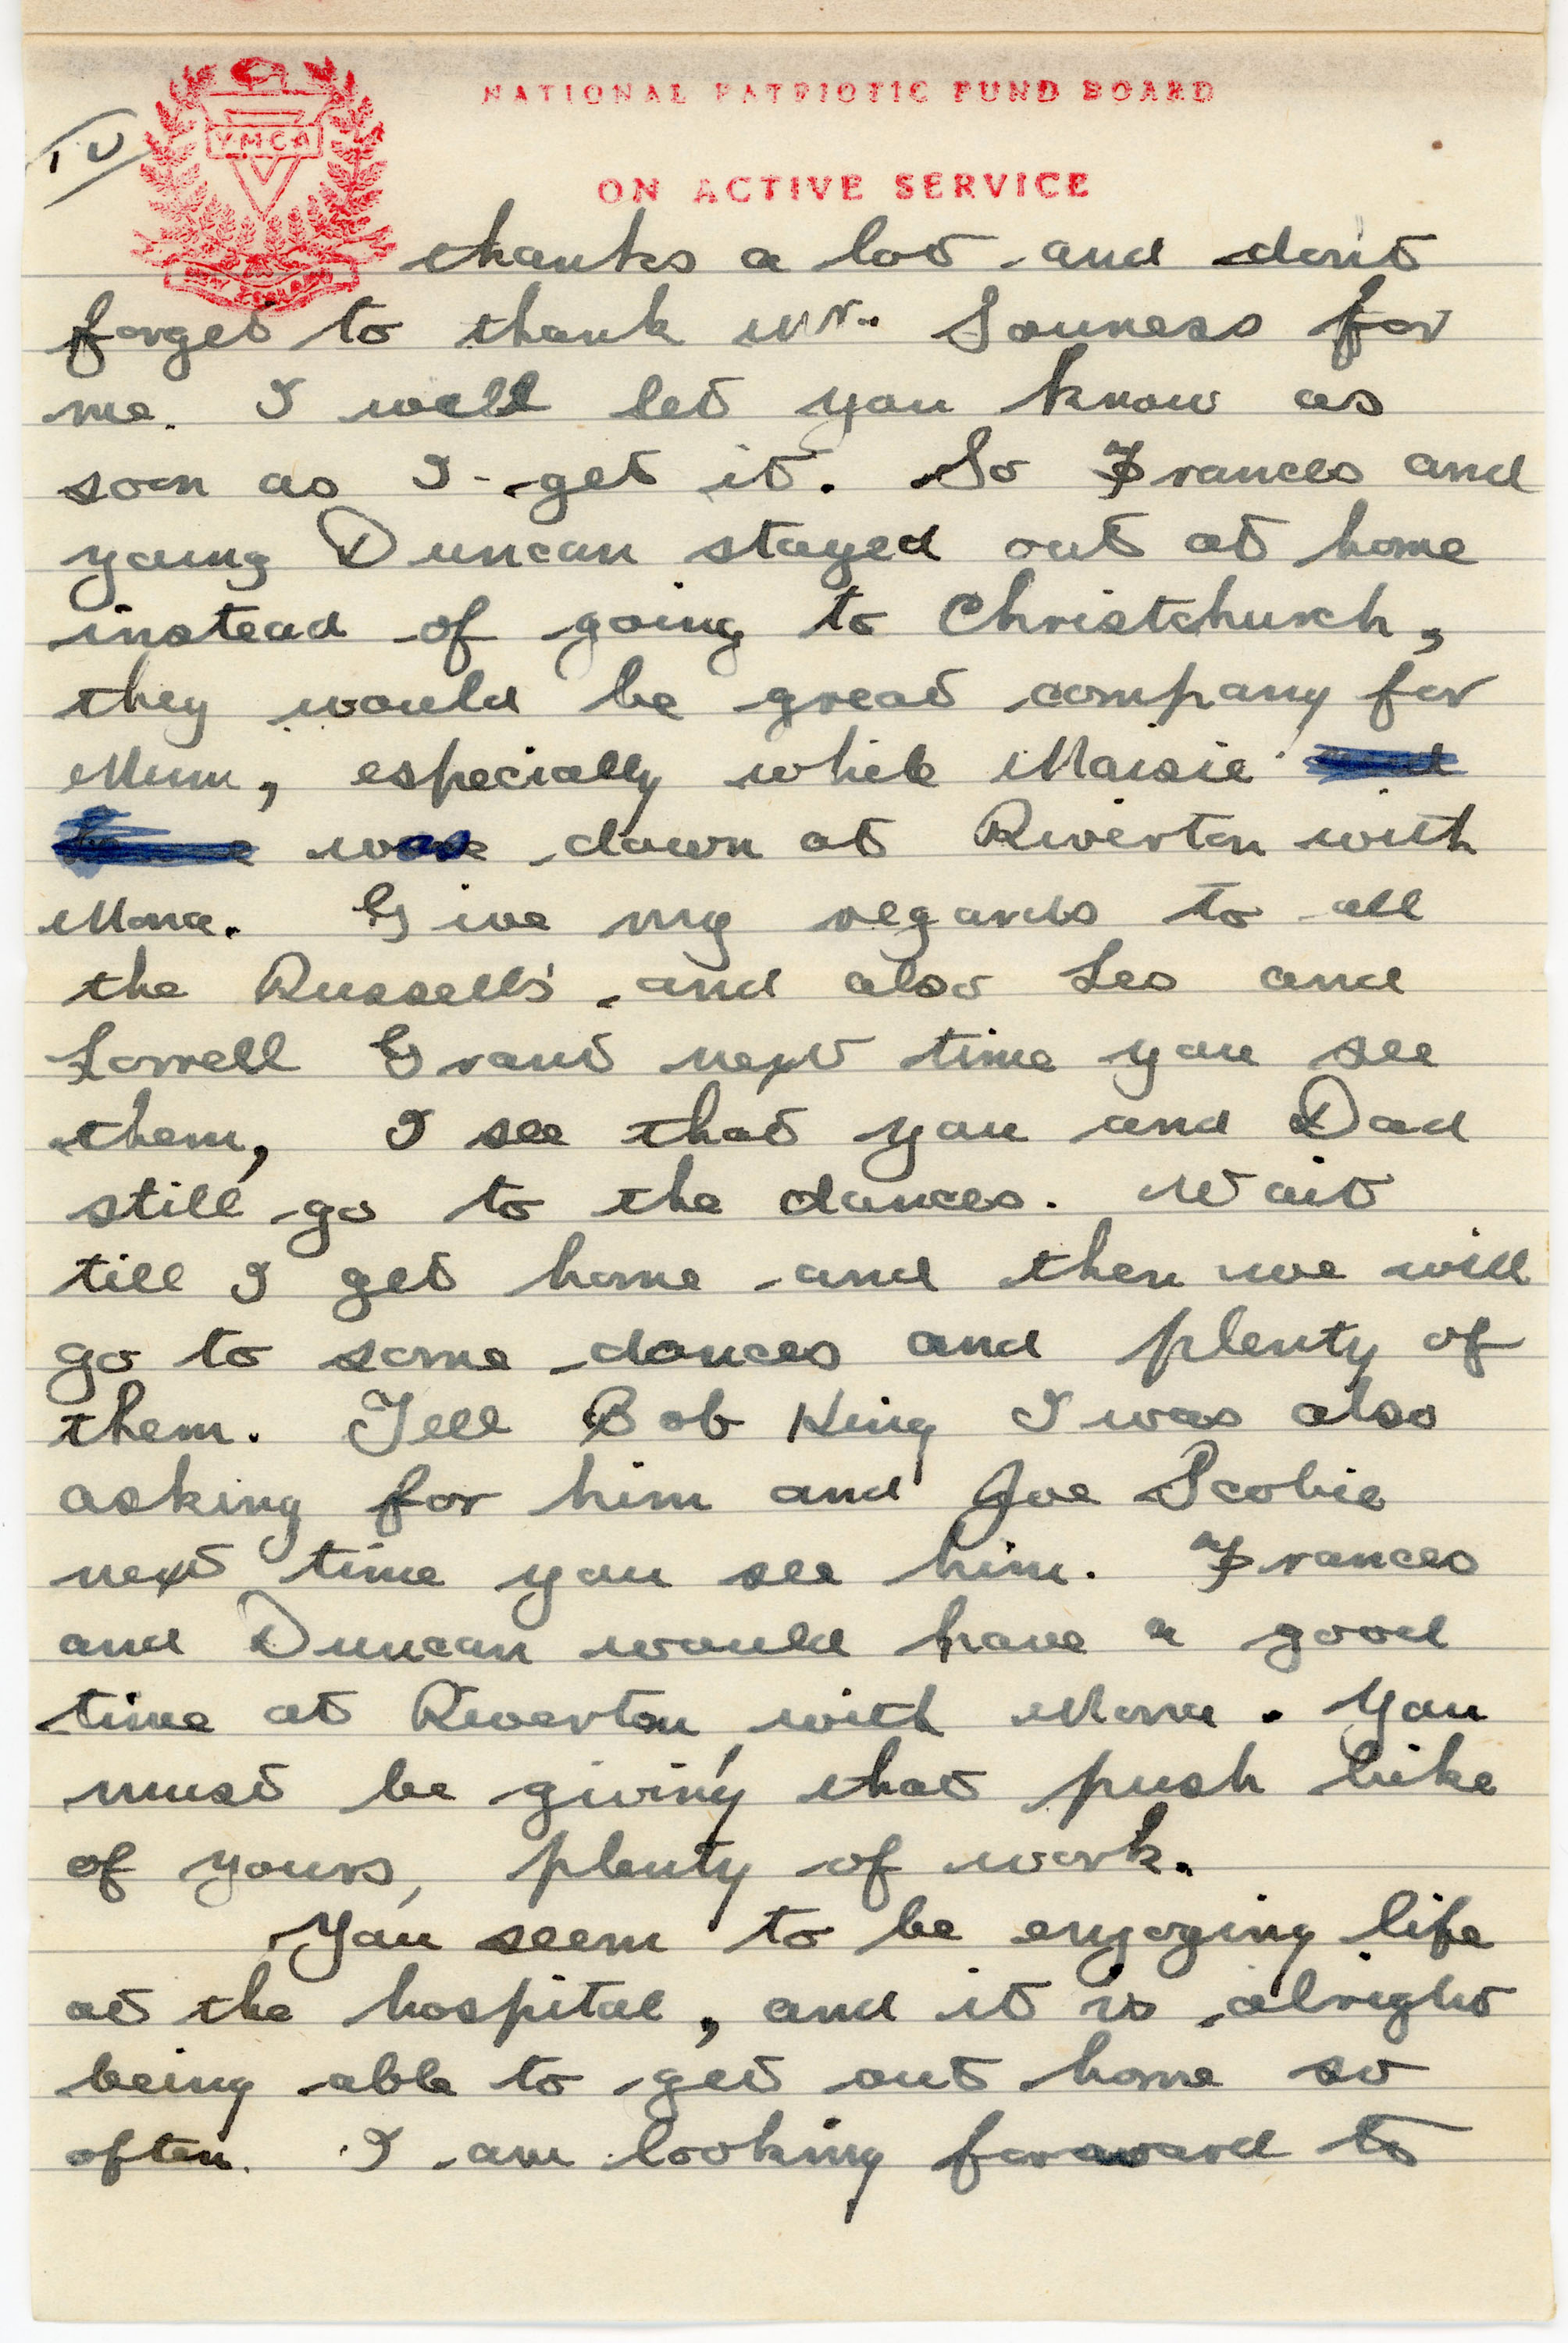 NATIONAL PATRIOTIC FUND BOARD
YMCA
ON ACTIVE SERVICE
NEW ZEALAND
thanks a lot and dont
forget to thank Mr. Souness for
me. I will let you know as
soon as I get it. So Frances and
young Duncan stayed out at home
instead of going to Christchurch,
they would be great company for
Mum, especially while Maisie
was down at Riverton with
Mona. Give my regards to all
the Russells' and also Les and
Lorrell Grant next time you see
them, I see that you and Dad
still go to the dances. Wait
till I get home and then we will
go to some dances and plenty of
them. Tell Bob King I was also
asking for him and Joe Scobie
next time you see him. Frances
and Duncan would have a good
time at Riverton with Mona. You
must be giving that push bike
of yours, plenty of work.
You seem to be enjoying life
at the hospital, and it is alright
being able to get out home so
often. I am looking forward to